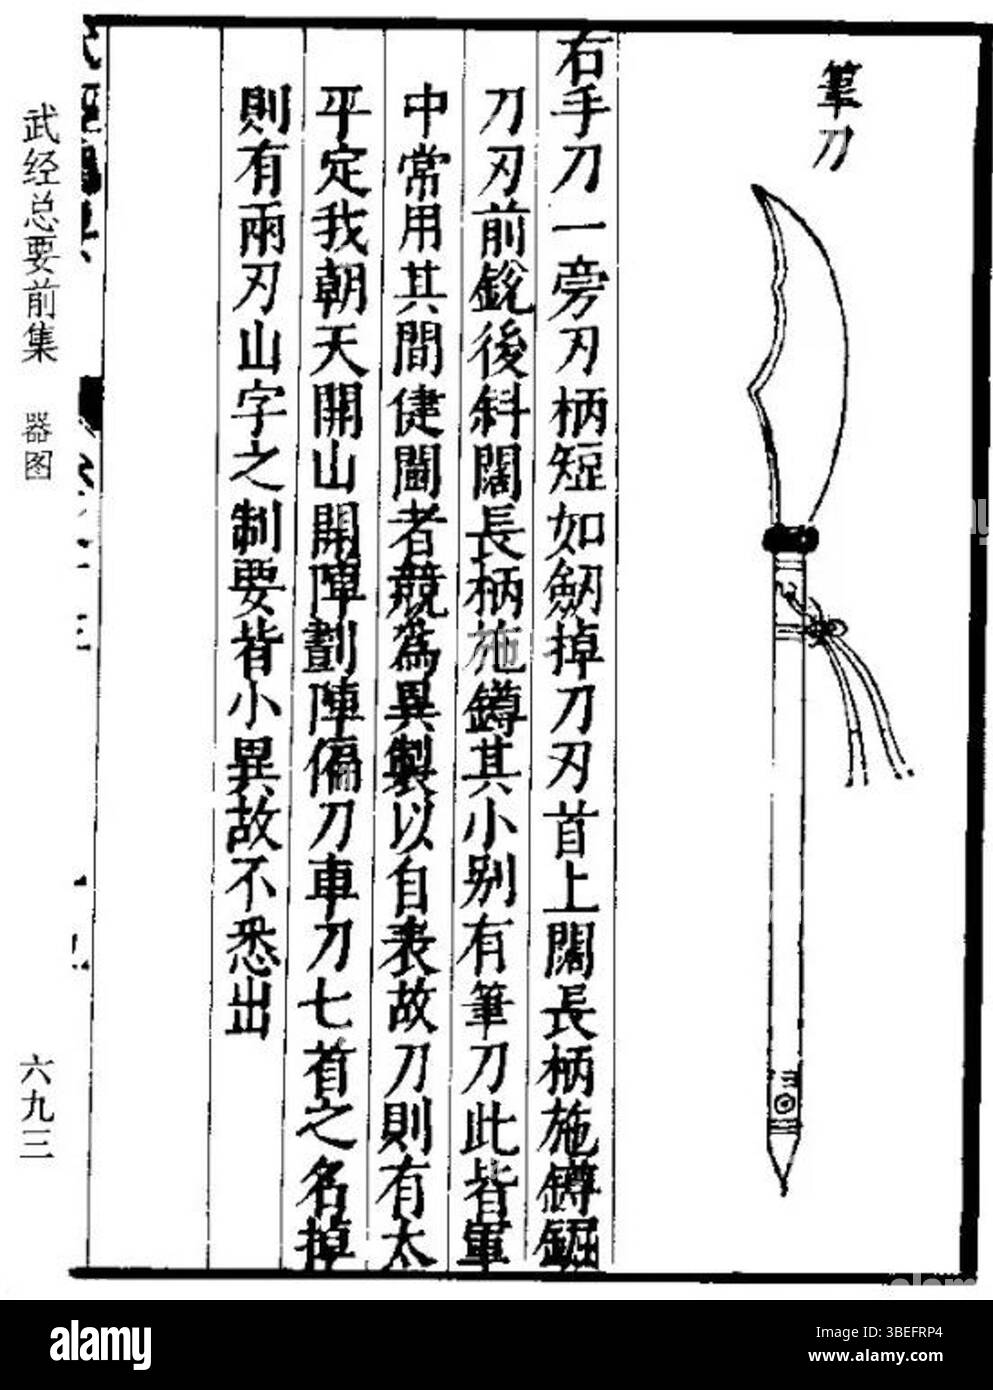 筆刀
右手刀一旁刃柄短如劒掉刀刃首上闊長柄施鐏鋸
刀刃前銳後斜闊長柄施鐏其小别有筆刀此皆軍
中常用其間健鬭者競為異製以自表故刀則有太
平定我朝天開山開陣劃陣偏刀車刀七首之名掉
則有兩刃山字之制要皆小異故不悉出
武经总要前集 器图
六九三
alamy
Image ID: 3BEFRP4
www.alamy.com